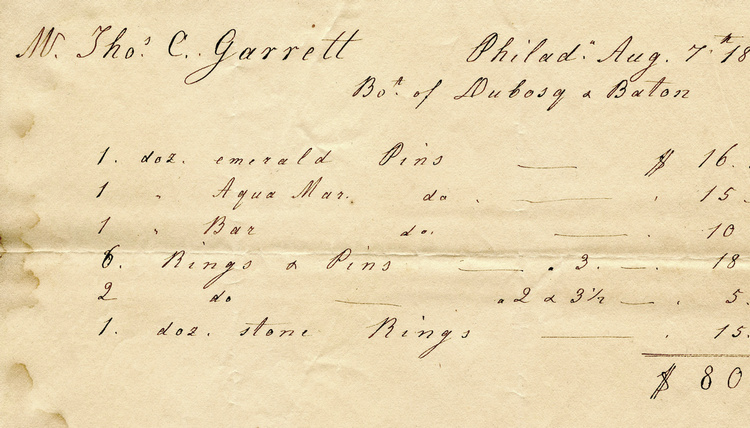 Mr. Thos. C. Garrett Philada. Aug. 7th 18
Bot. of Dubosq & Baton
1. doz. emerald Pins — $ 16.
1 " Aqua Mar. do. — " 15.
1 " Bar do. — " 10
6. Rings & Pins — " 3. — " 18
2 do — " 2 & 3 1/2 — " 5.
1. doz. stone Rings — " 15.
$ 80